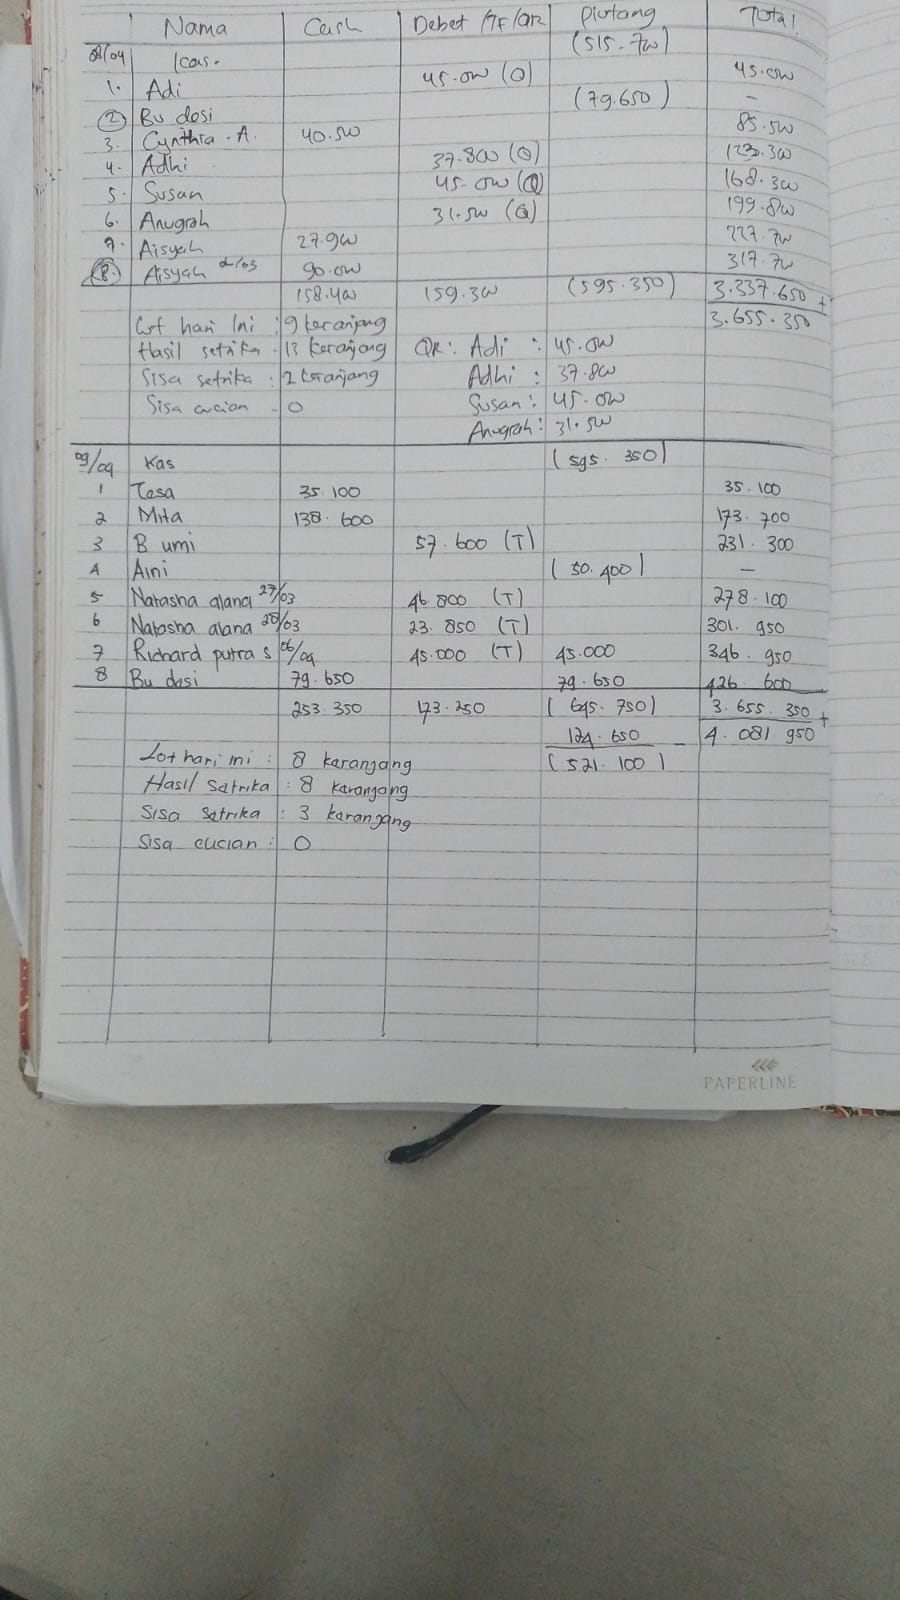 Nama Cash Debet /TF/QR Piutang Total
08/04 Kas. (515.700)
1. Adi 45.000 (Q) 45.000
2 Bu desi (79.650) –
3. Cynthia. A. 40.500 85.500
4. Adhi 37.800 (Q) 123.300
5. Susan 45.000 (Q) 168.300
6. Anugrah 31.500 (Q) 199.800
7. Aisyah 27.900 227.700
8. Aisyah 90.000 317.700
158.400 159.300 (595.350) 3.337.650 +
3.655.350
hari Ini : 9 keranjang
Hasil setrika : 13 keranjang QR : Adi : 45.000
Sisa setrika : 2 keranjang Adhi : 37.800
Sisa cucian - 0 Susan : 45.000
Anugrah : 31.500
09/04 Kas (595.350)
1 Tesa 35.100 35.100
2 Mita 138.600 173.700
3 B umi 57.600 (T) 231.300
4 Aini (50.400) –
5 Natasha alana 27/03 46.800 (T) 278.100
6 Natasha alana 28/03 23.850 (T) 301.950
7 Richard putra S 06/04 45.000 (T) 45.000 346.950
8 Bu desi 79.650 79.650 426.600
253.350 173.250 (645.750) 3.655.350 +
124.650 – 4.081.950
Lot hari ini : 8 karangang (521.100)
Hasil Satrika : 8 karangang
Sisa Satrika : 3 karangang
Sisa cucian : 0
PAPERLINE